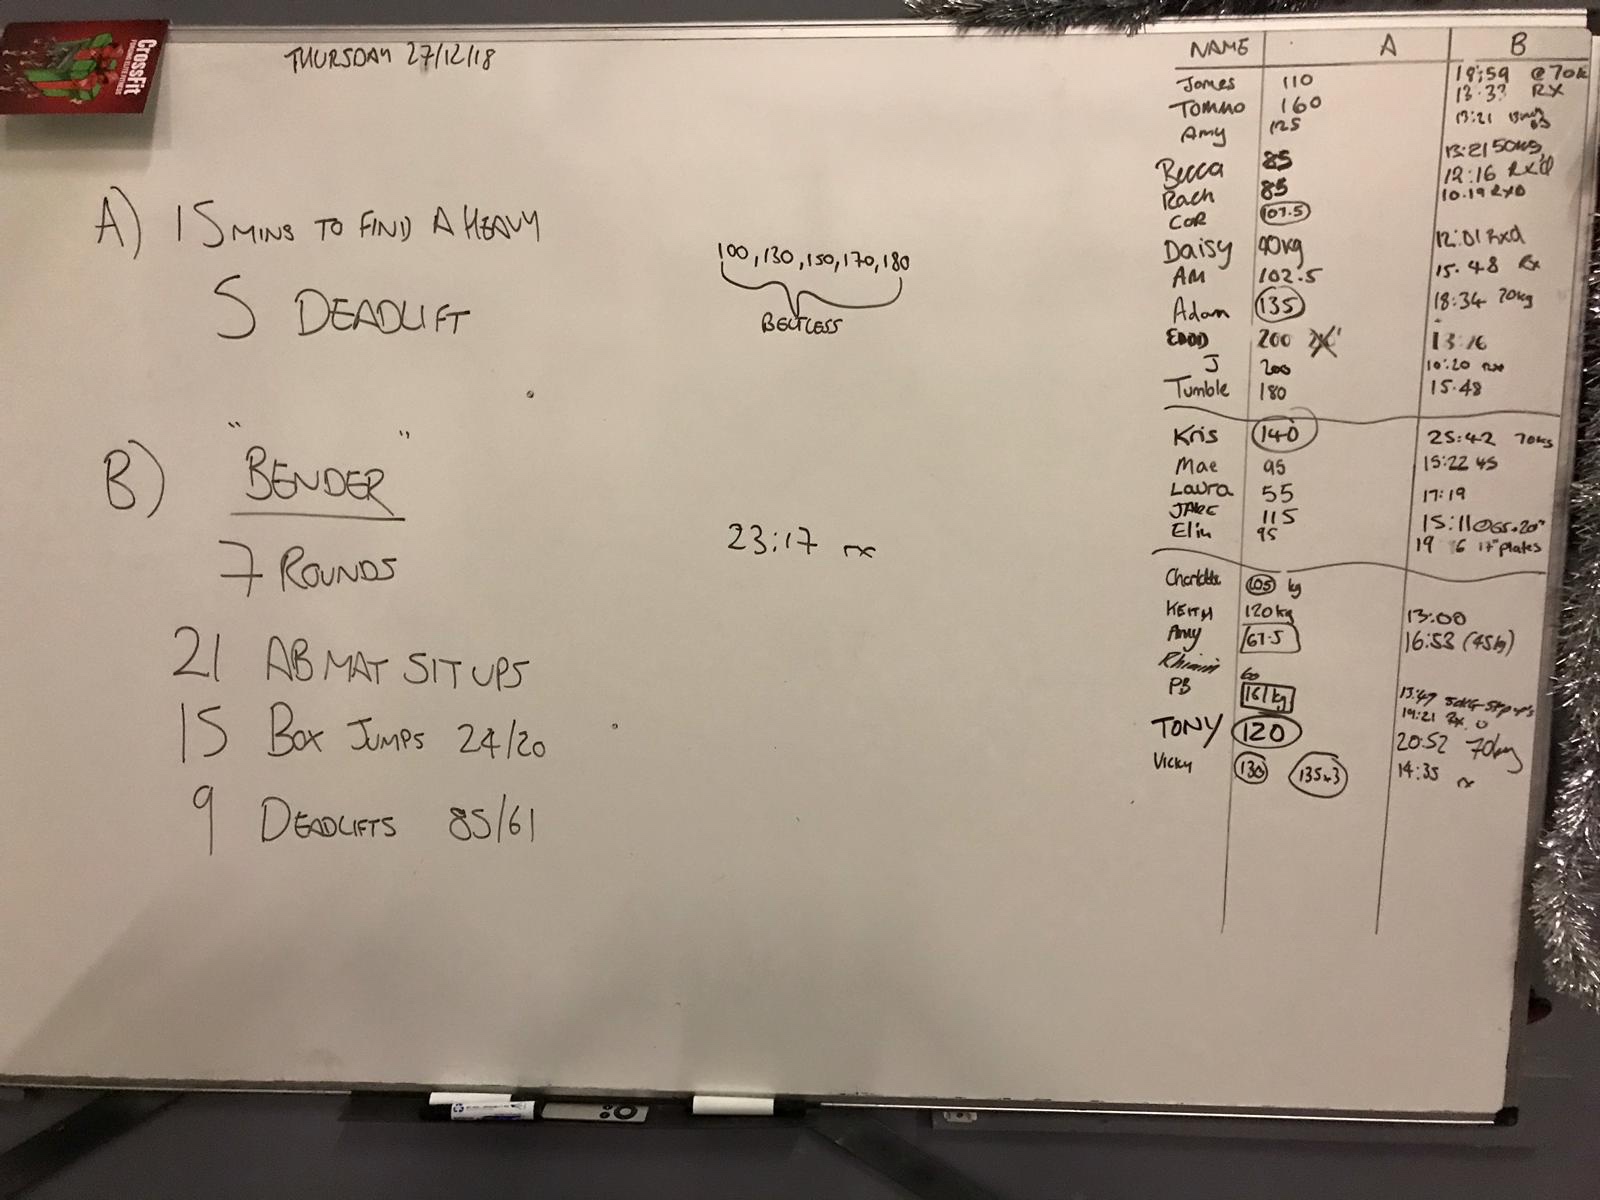 CrossFit
THURSDAY 27/12/18
A) 15 MINS TO FIND A HEAVY
5 DEADLIFT
100, 130, 150, 170, 180
BELTLESS
B) "BENDER"
7 ROUNDS
21 AB MAT SIT UPS
15 BOX JUMPS 24/20
9 DEADLIFTS 85/61
23:17 rx
NAME A B
James 110 @ 70k
TOMMO 160 RX
Amy 125 13:21
Becca 85 13:21 50kg
Rach 85 12:16 RX'd
COR 107.5 10.19 RXD
Daisy 90kg 12:01 Rxd
AM 102.5 15.48 Rx
Adam 135 18:34 70kg
EDDD 200 13:16
J 200 10:20 rx
Tumble 180 15.48
Kris 140 25:42 70kg
Mae 95 15:22 45
Laura 55 17:19
JAKE 115 15:11 @65+20"
Elin 95 19 6 17" plates
Charlotte 105 kg
KEITH 120kg 13:00
Amy 67.5 16:53 (45kg)
60
PB 161kg 19:21 Rx
TONY 120 20:52 70kg
Vicky 130 135x3 14:35 rx